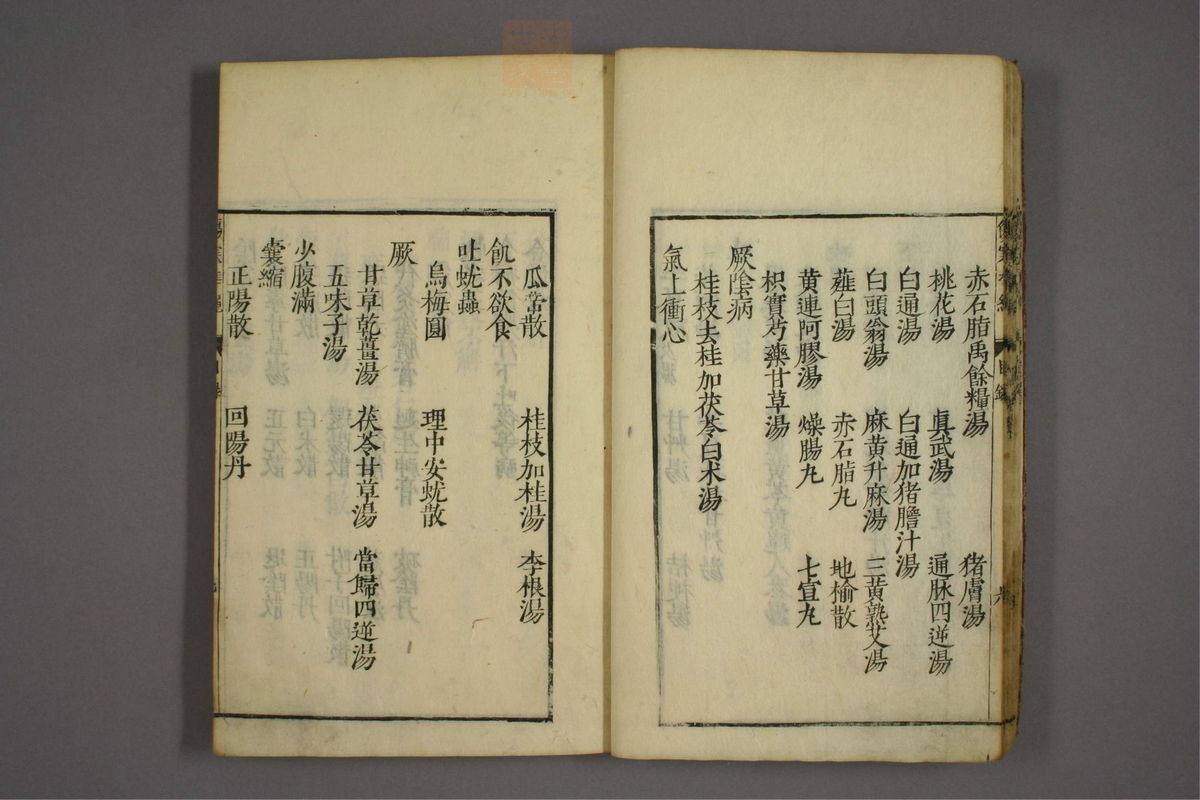 赤石脂禹餘糧湯 猪膚湯
桃花湯 眞武湯 通脉四逆湯
白通湯 白通加猪膽汁湯
白頭翁湯 麻黄升麻湯 三黄熟艾湯
薤白湯 赤石脂丸 地榆散
黄連阿膠湯 燥腸丸 七宣丸
枳實芍藥甘草湯
厥陰病
桂枝去桂加茯苓白术湯
氣上衝心
瓜蒂散 桂枝加桂湯 李根湯
飢不欲食
吐蚘蟲
烏梅圓 理中安蚘散
厥
甘草乾薑湯 茯苓甘草湯 當歸四逆湯
五味子湯
少腹滿
囊縮
正陽散 回陽丹